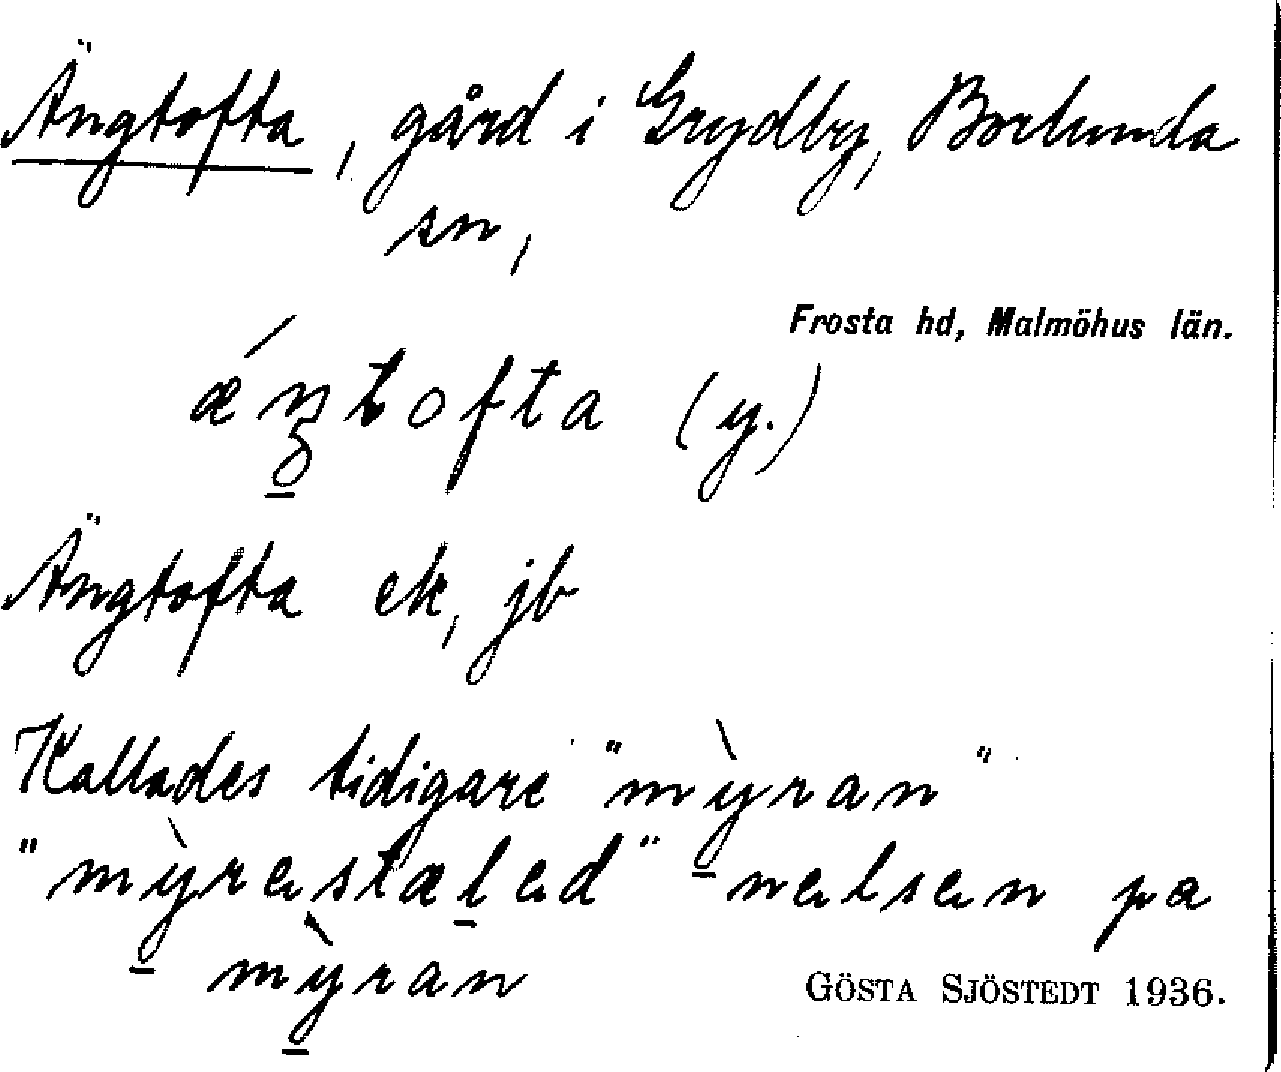 Ängtofta, gård i Grydby, Borlunda
sn,
Frosta hd, Malmöhus län.
ǽŋtofta (y.)
Ängtofta ek, jb
Kallades tidigare "mỳran"
"mỳrestæled" nelsen pa
mỳran
GÖSTA SJÖSTEDT 1936.